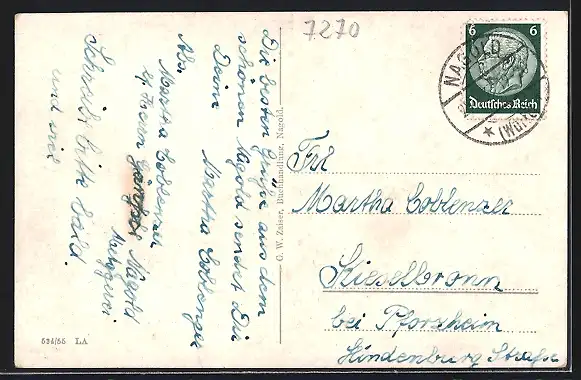 7270
Die besten Grüße aus dem
schönen Nagold sendet Dir
Deine
Martha Coblenzer
Abs.
Martha Coblenzer
b/ Herrn
Nagold
Metzgerei
Schreibe bitte bald.
und viel
G. W. Zaiser, Buchhandlung, Nagold.
534/55 LA
6 6
Deutsches Reich
NAGOLD
(Württ.)
Frl
Martha Coblenzer
Kieselbronn
bei Pforzheim
Hindenburg Straße